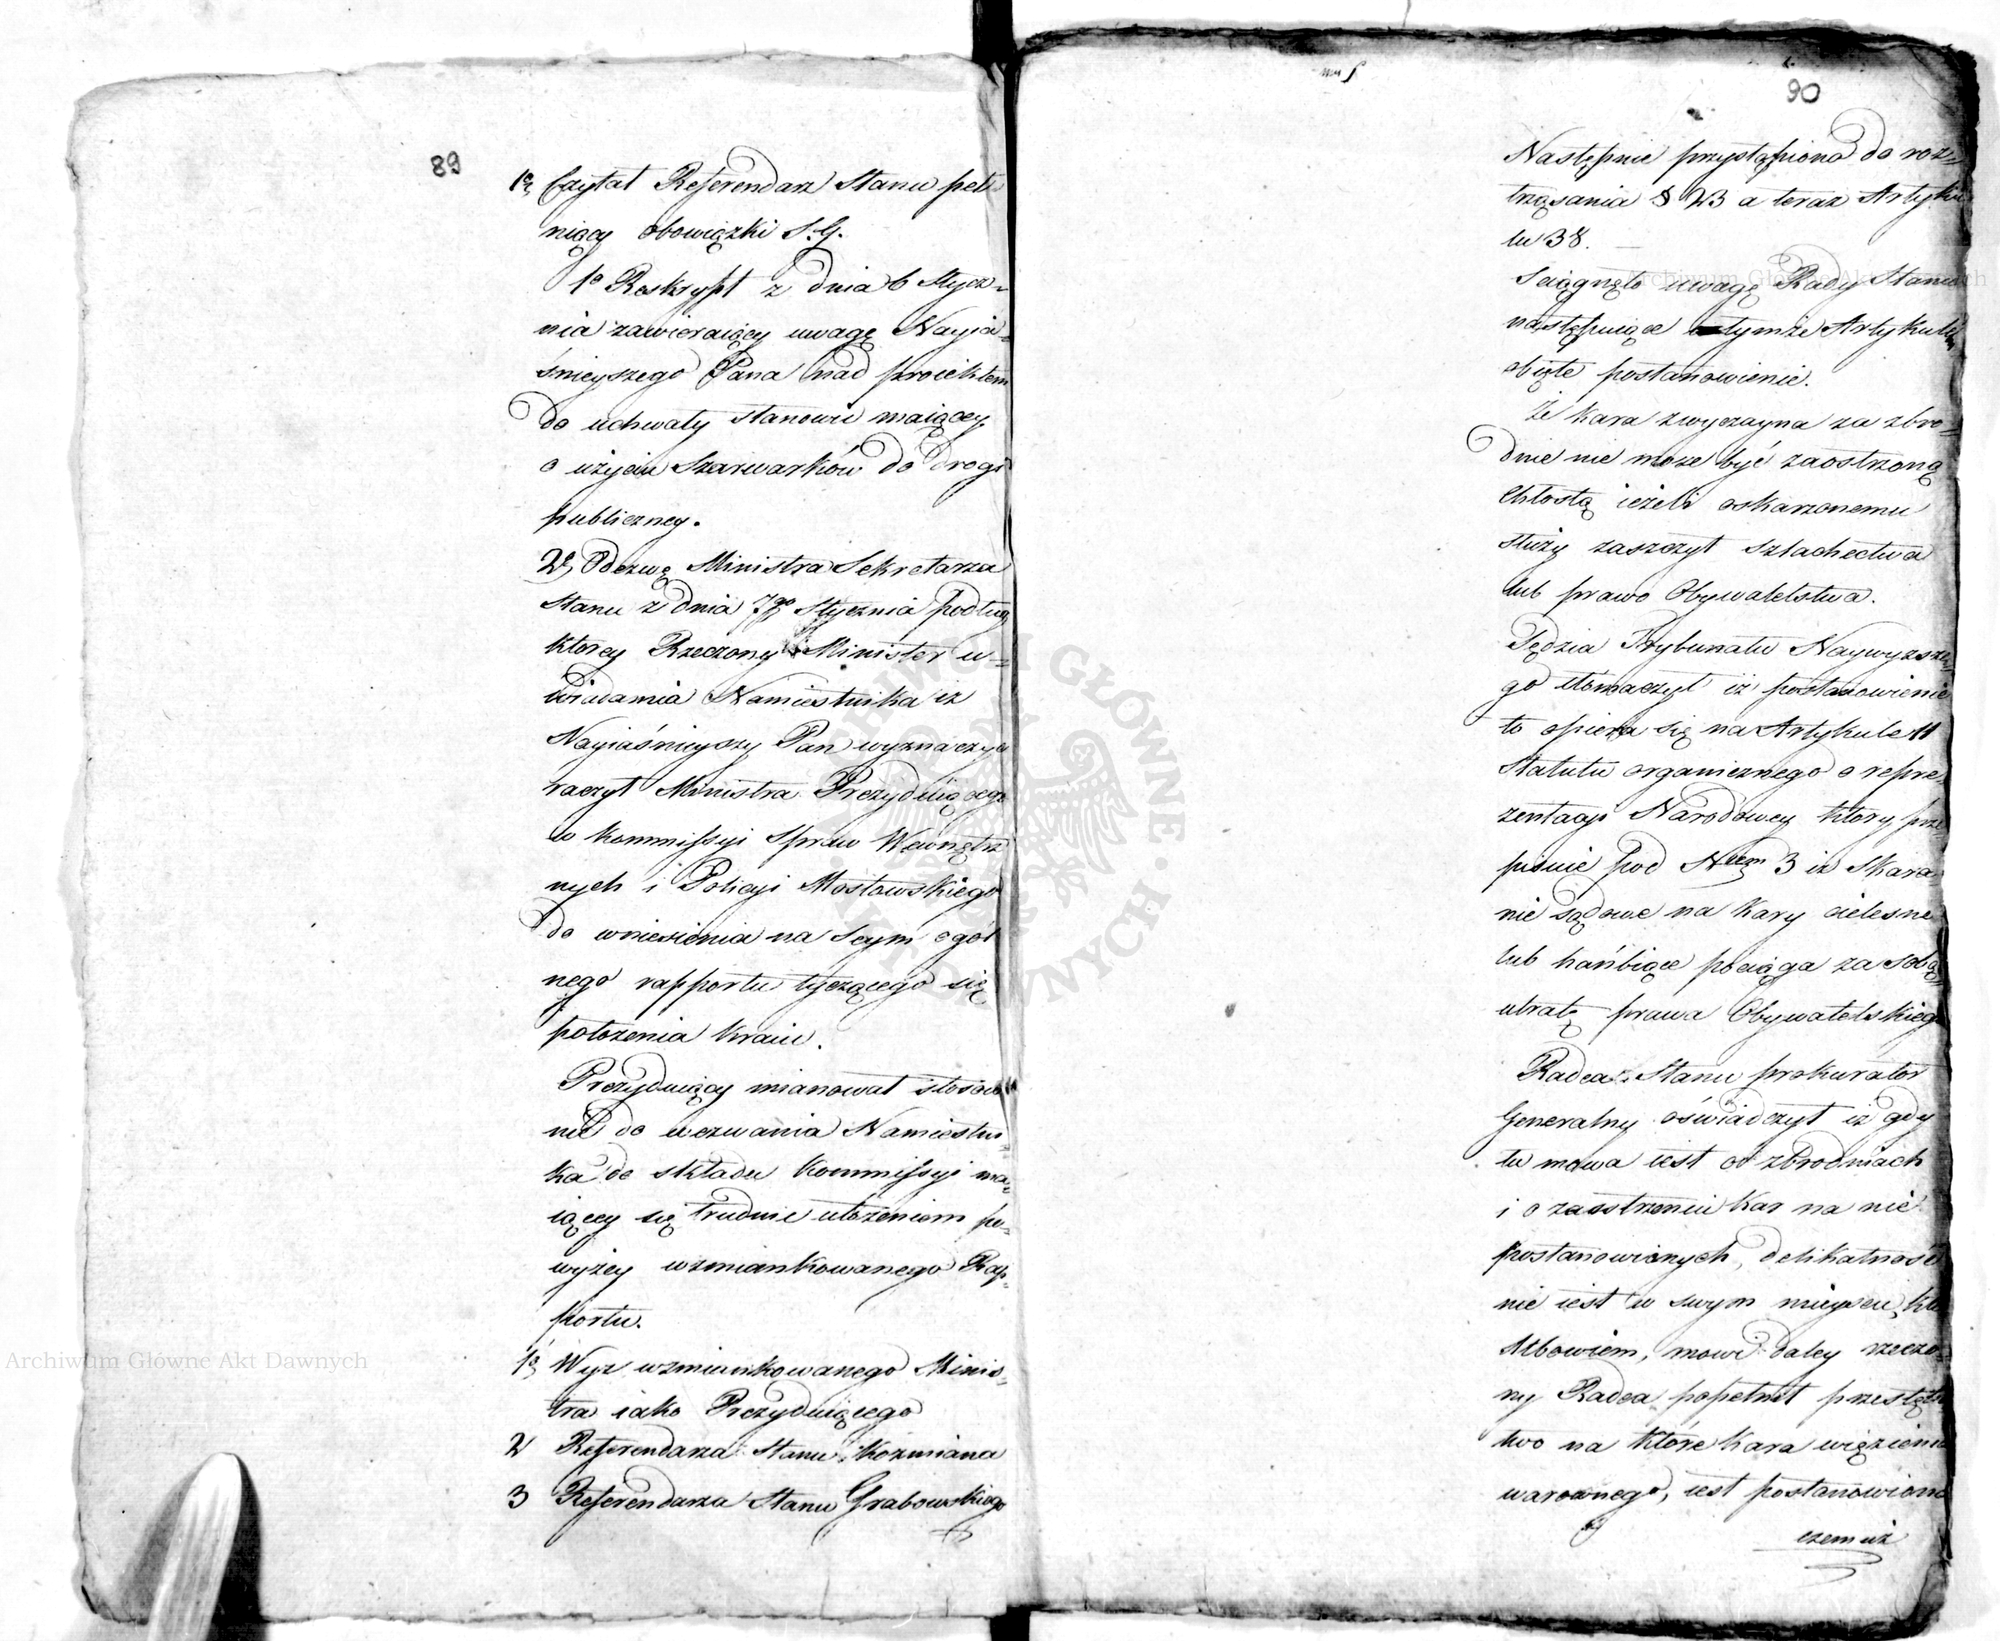 89
1º Czytał Referendarz Stanu peł
niący obowiązki S.G.
1º Reskrypt z dnia 6 Stycz=
nia zawieraiący uwagę Nayia=
śnieyszego Pana nad proiektem
do uchwały stanowić maiącey
o użyciu Szarwarków do drogi
publiczney.
2º Odezwę Ministra Sekretarza
Stanu z dnia 7go Stycznia podług
ktorey Rzeczony Minister u=
wiadamia Namiestnika iż
Nayiaśnieyszy Pan wyznaczyć
raczył Ministra Prezyduiącego
w Kommissyi Spraw Wewnętrz
nych i Policyi Mostowskiego
do wniesienia na Seym ogól
nego rapportu tyczącego się
położenia Kraiu.
Prezyduiący mianował stosow
nie do wezwania Namiestni=
ka do składu Kommissyi ma=
iącey się trudnić ułożeniem po=
wyżey wzmiankowanego Rap=
portu.
1º Wyż wzmiankowanego Minis=
tra iako Prezyduiącego
2 Referendarza Stanu Kozmiana
3 Referendarza Stanu Grabowskiego
90
Następnie przystąpiono do roz=
trząsania § 23 a teraz Artyku
łu 38.
Sciągnęło uwagę Rady Stanu
następuiące tymże Artykułem
obięte postanowienie.
Że kara zwyczayna za zbro=
dnie nie może być zaostrzoną
Chłostą ieżeli oskarżonemu
służy zaszczyt szlachectwa
lub prawo Obywatelstwa.
Sędzia Trybunału Naywyższe=
go tłomaczył iż postanowienie
to opiera się na Artykule 11
Statutu organicznego o repre=
zentacyi Narodowey ktory prze
pisuie pod Nrem 3 iż Skaza=
nie sądowe na kary cielesne
lub hańbiące pociąga za sobą
utratę prawa Obywatelskiego
Radca Stanu prokurator
Generalny oświadczył iż gdy
tu mowa iest o zbrodniach
i o zaostrzeniu kar na nie
postanowionych, delikatność
nie iest w swym mieyscu, kto
Albowiem, mowi daley rzeczo=
ny Radca popełnił przestęp
two na które kara więzienia
warownego, iest postanowiona
czemuż
Archiwum Główne Akt Dawnych
Archiwum Główne Akt Dawnych
ARCHIWUM GŁÓWNE AKT DAWNYCH